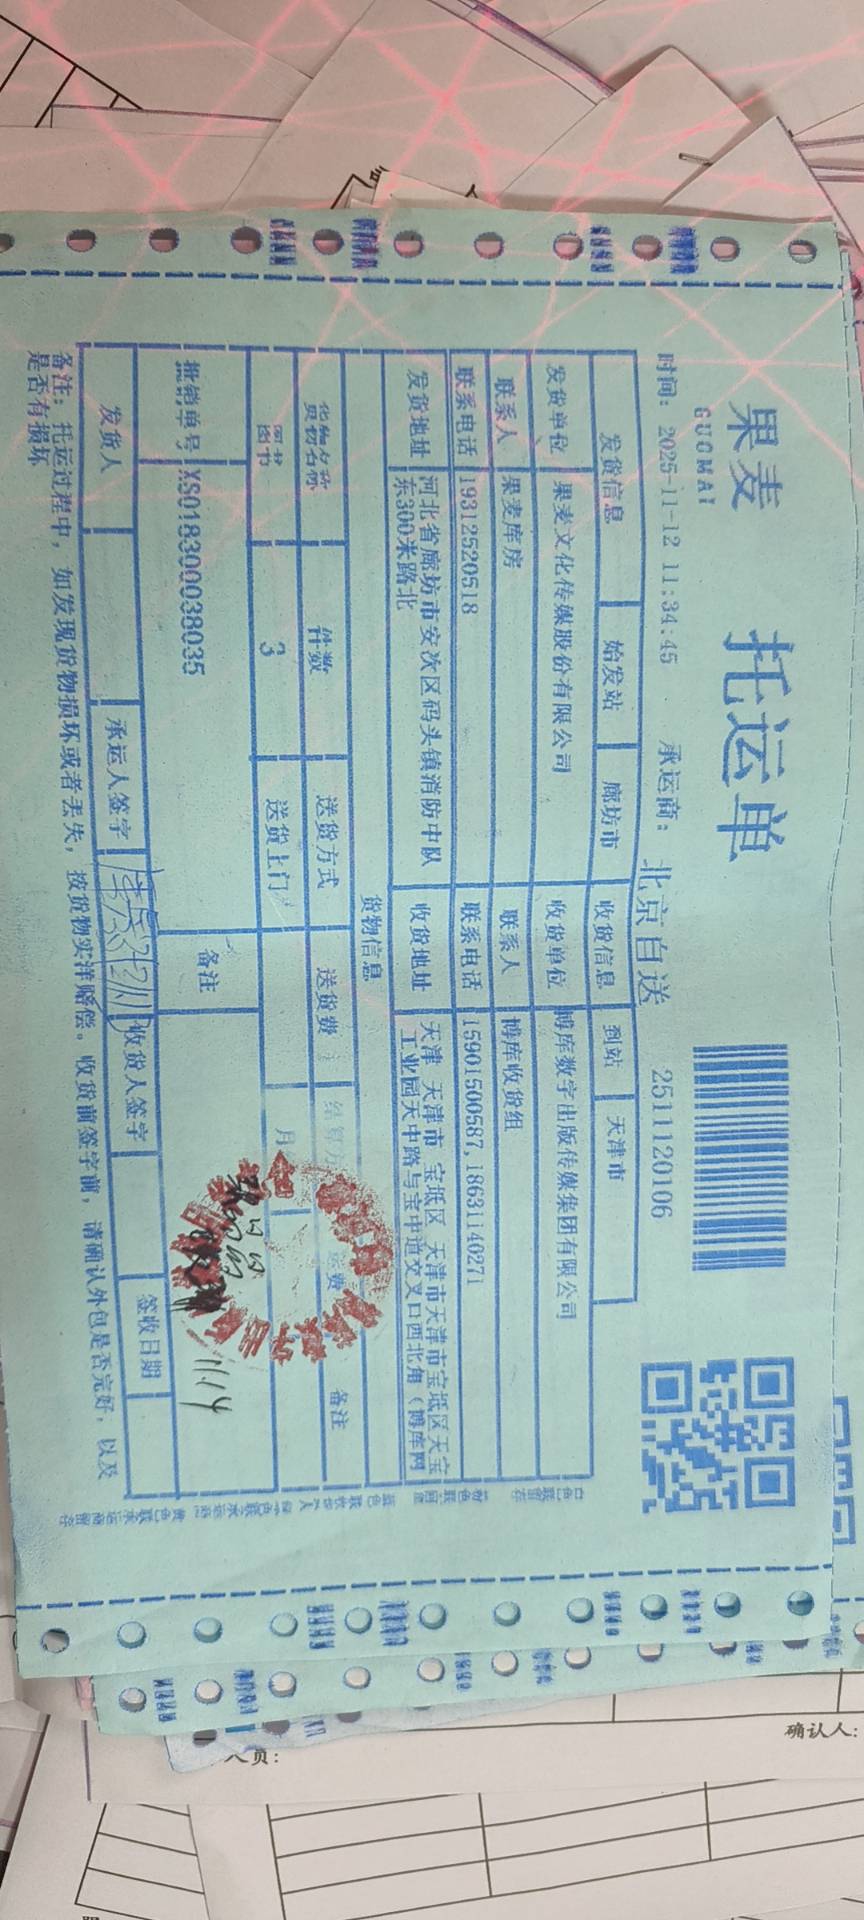 果麦
GUOMAI
托运单
时间: 2025-11-12 11:34:45 承运商: 北京自送 2511120106
发货信息 始发站 廊坊市 收货信息 到站 天津市
发货单位 果麦文化传媒股份有限公司 收货单位 博库数字出版传媒集团有限公司
联系人 果麦库房 联系人 博库收货组
联系电话 19312520518 联系电话 15901500587,18631140271
发货地址 河北省廊坊市安次区码头镇消防中队东300米路北 收货地址 天津 天津市 宝坻区 天津市天津市宝坻区天宝工业园天中路与宝中道交叉口西北角（博库网
货物信息
货物名称 件数 送货方式 送货费 结算方 运费 备注
图书 3 送货上门 月
批销单号 XS018300038035 备注
11.14
发货人 承运人签字 收货人签字 签收日期
备注: 托运过程中, 如发现货物损坏或者丢失, 按货物实洋赔偿。收货前签字前, 请确认外包是否完好, 以及
是否有损坏
确认人:
人员: